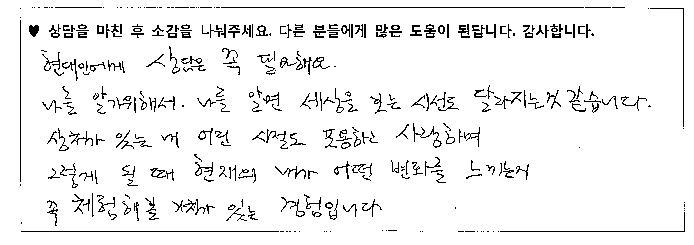 ♥ 상담을 마친 후 소감을 나눠주세요. 다른 분들에게 많은 도움이 된답니다. 감사합니다.
현대인에게 상담은 꼭 필요해요.
나를 알기위해서. 나를 알면 세상을 보는 시선도 달라지는것 같습니다.
상처가 있는 내 어린 시절도 포용하고 사랑하며
그렇게 될 때 현재의 내가 어떤 변화를 느끼는지
꼭 체험해볼 가치가 있는 경험입니다.